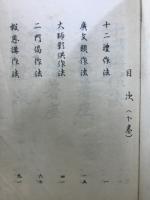 目次(下巻)
十二禮作法 一
廣文類作法 一五
大師影供作法 四一
二門偈作法 六七
報恩講作法 九一